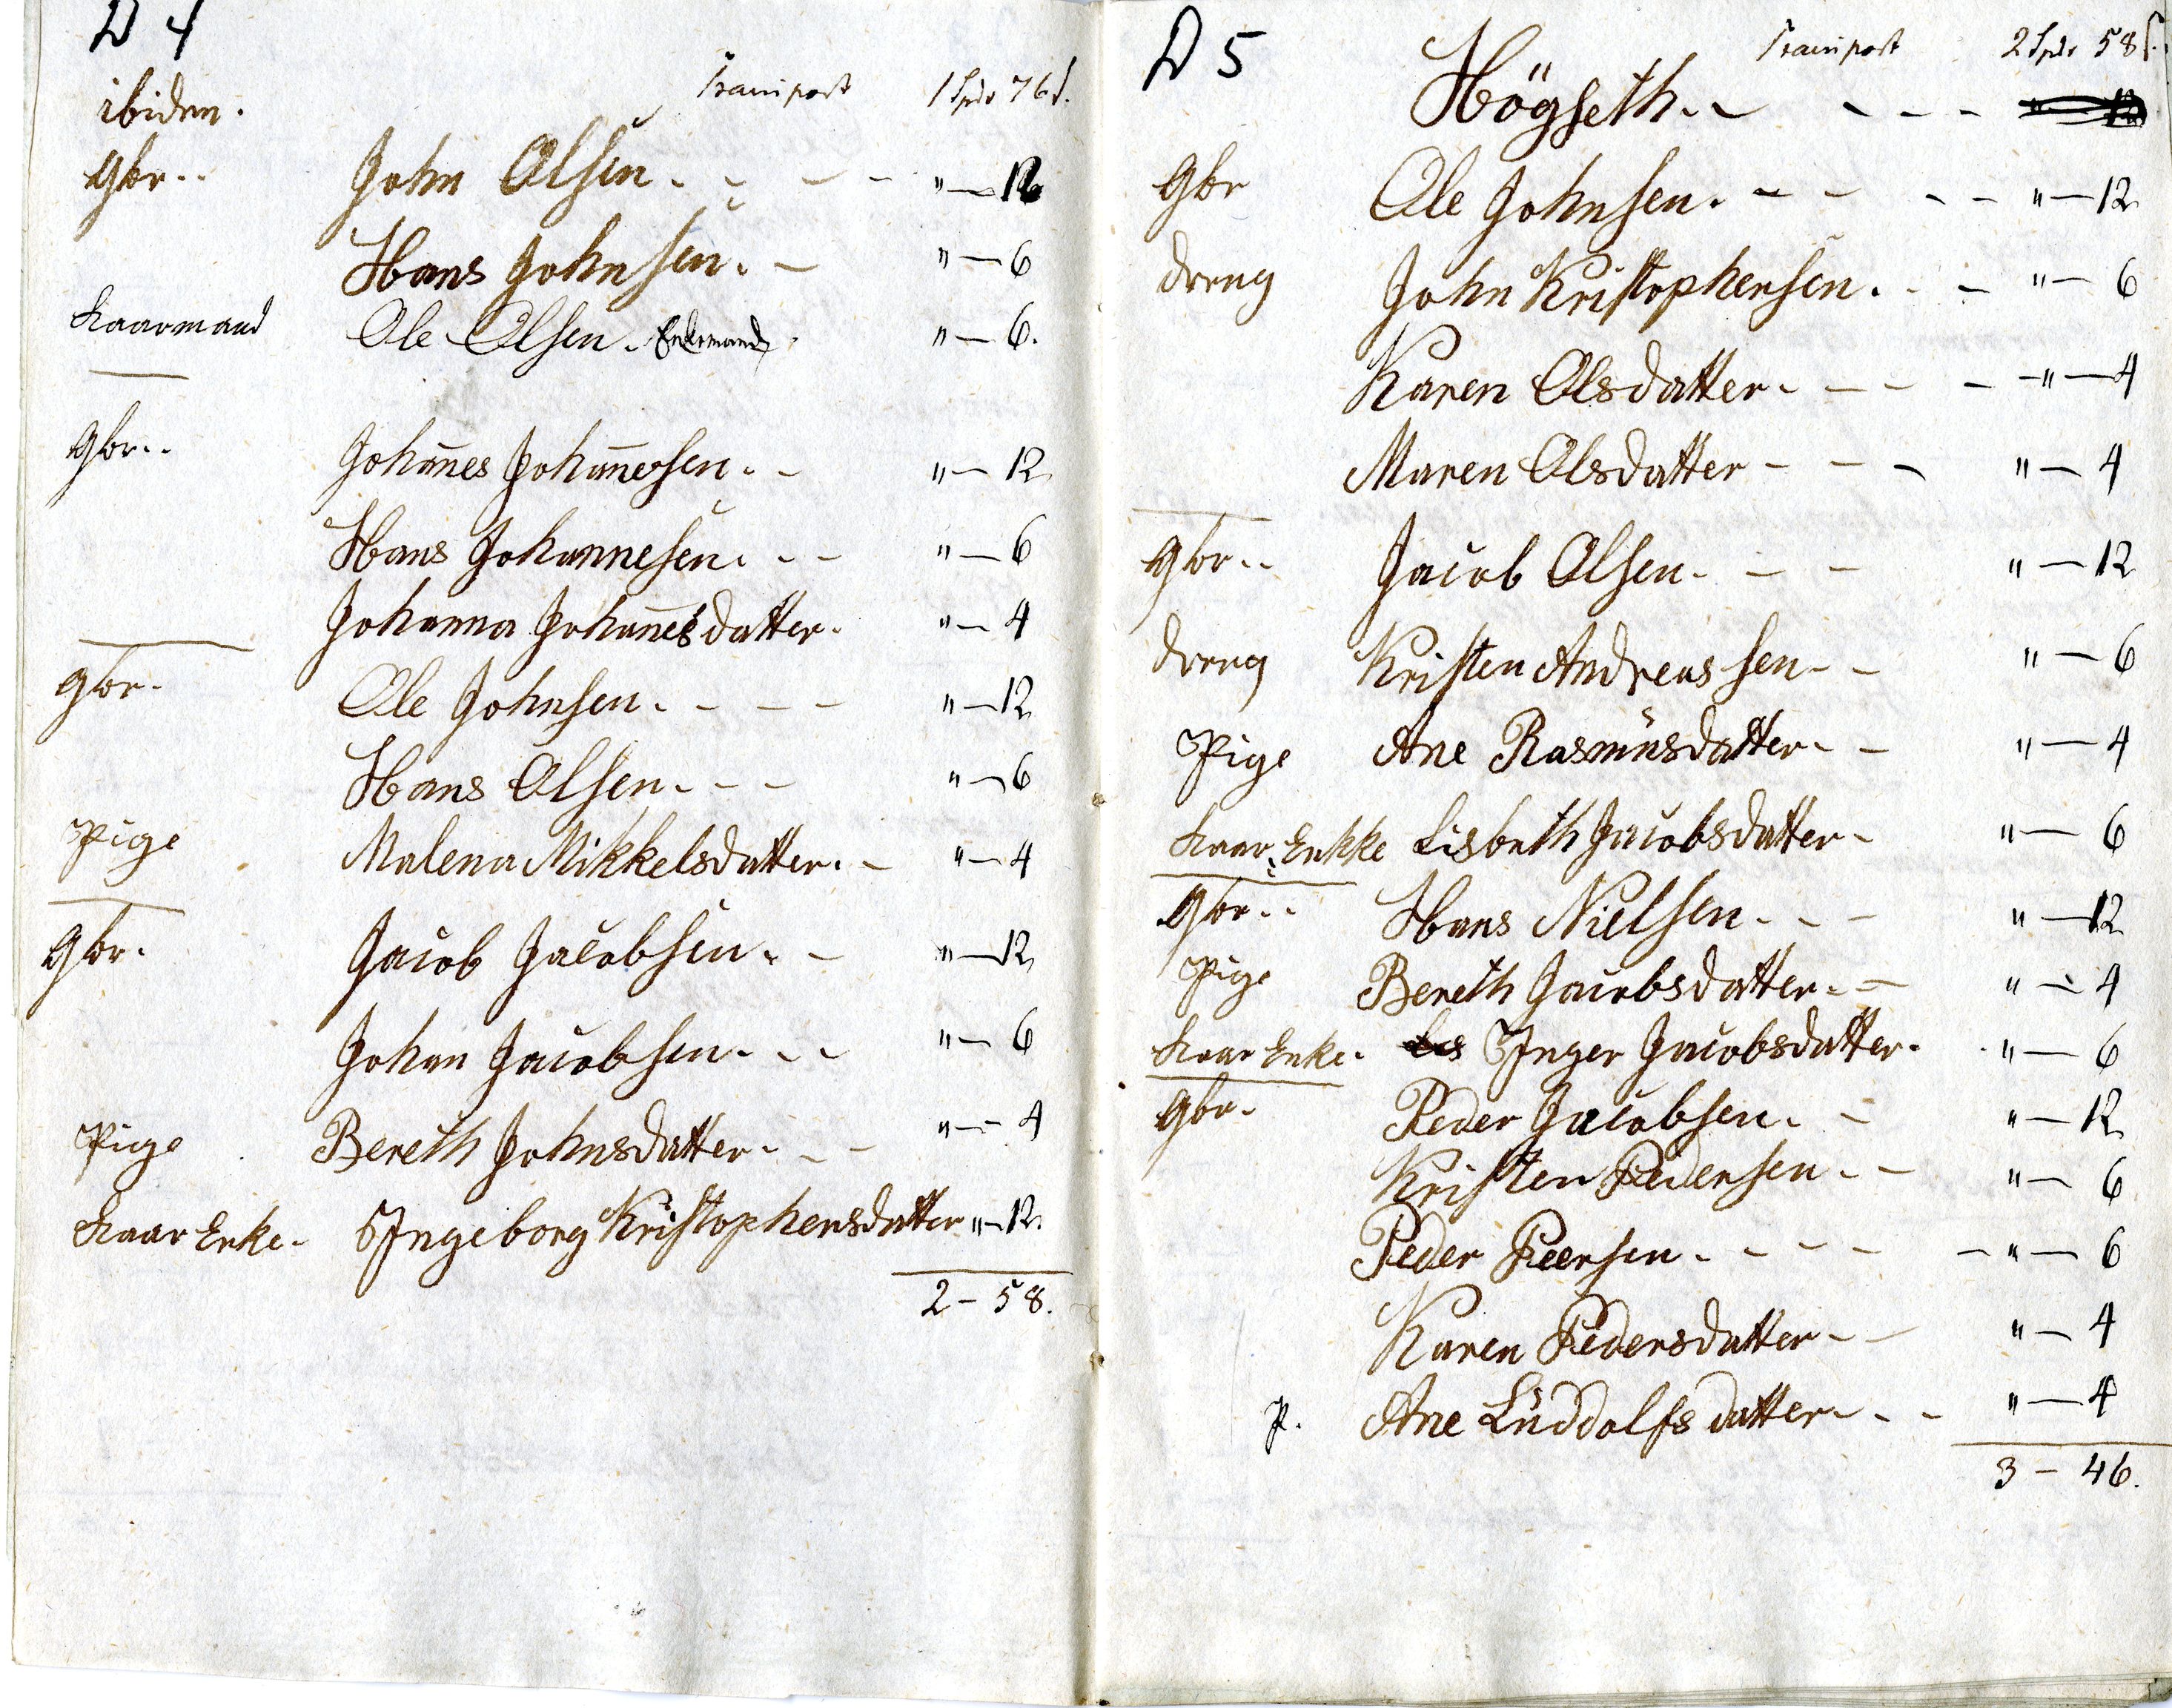 D 4
Transport 1 Spdr 76 s.
ibidem.
Gbr.. John Olsen. - - - " — 12
Hans Johnsen. - " — 6
Kaarmand Ole Olsen. Enkemand. " — 6.
Gbr.. Johan̄es Johan̄esen. - " — 12
Hans Johannesen. - - " — 6
Johanna Johan̄esdatter. " — 4
Gbr. Ole Johnsen. - - - " — 12
Hans Olsen. - - - " — 6
Pige Malena Mikkelsdatter. - " — 4
Gbr. Jacob Jacobsen. - " — 12
Johan Jacobsen. - - " — 6
Pige Bereth Johnsdatter. - - " — 4
Kaar Enke. Ingeborg Kristophersdatter " — 12
2 - 58.
D 5
Transport 2 Spdr 58 s.
Högseth. - - - -
Gbr Ole Johnsen. - - - - " — 12
dreng John Kristophersen. - - " — 6
Karen Olsdatter. - - - - " — 4
Maren Olsdatter - - - " — 4
Gbr.. Jacob Olsen. - - " — 12
dreng Kristen Andreassen - - " — 6
Pige Ane Rasmusdatter. - " — 4
Kaar Enkke Lisbeth Jacobsdatter - " — 6
Gbr.. Hans Nielsen. - - " — 12
Pige Bereth Jacobsdatter. - " — 4
Kaar Enke. Inger Jacobsdatter. " — 6
Gbr. Peder Jacobsen. - " — 12
Kristen Pedersen. - " — 6
Peder Peersen. - - - - " — 6
Karen Pedersdatter - - " — 4
P. Ane Luddolfsdatter. - - " — 4
3 - 46.